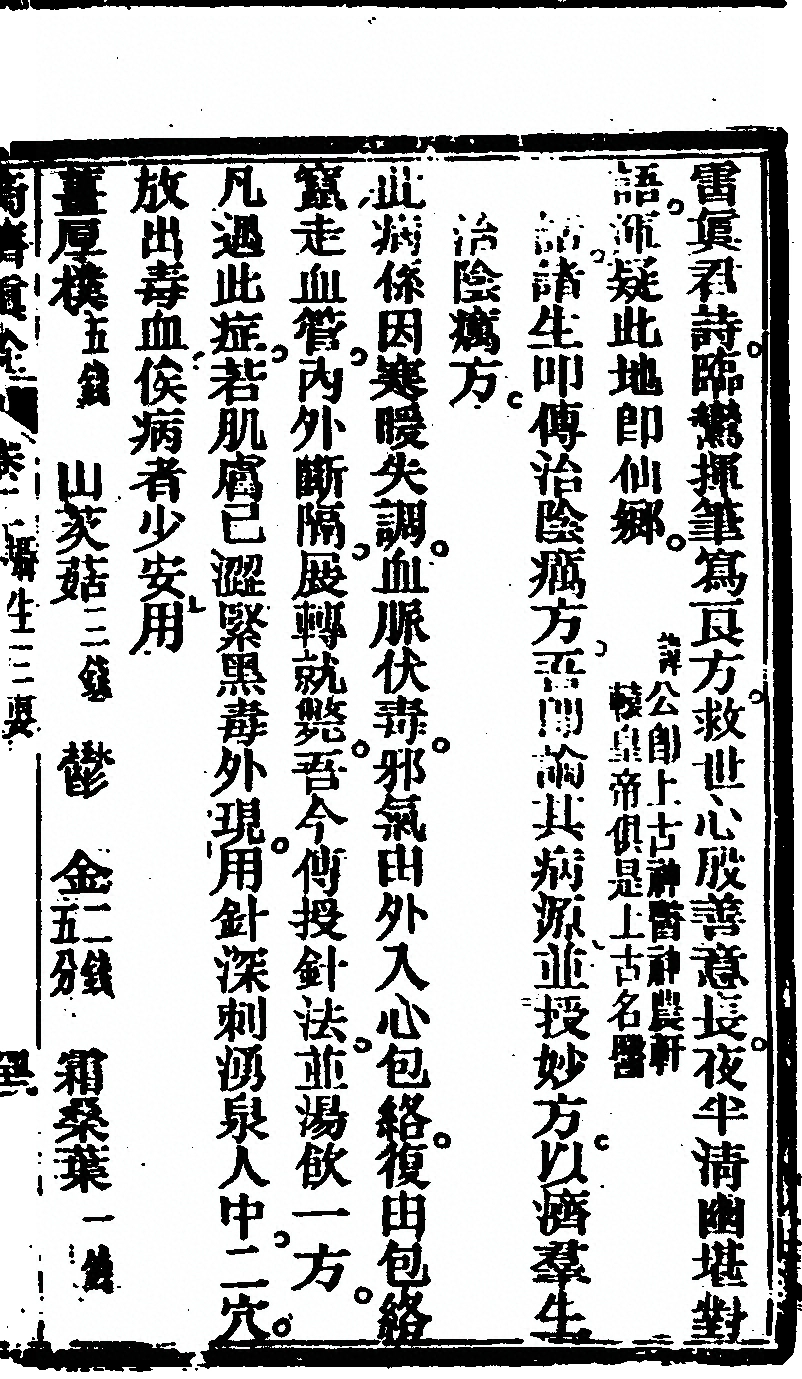 雷眞君詩臨鸞揮筆寫良方救世心殷善意長夜半淸幽堪對
語渾疑此地卽仙鄉
公卽上古神醫神農軒
轅皇帝俱是上古名醫
諸生叩傳治陰癘方吾閒論其病源並授妙方以濟羣生
治陰癘方
此病係因寒暖失調血脈伏毒邪氣由外入心包絡復由包絡
竄走血管內外斷隔展轉就斃吾今傳授針法並湯飲一方
凡遇此症若肌膚已澀緊黑毒外現用針深刺湧泉人中二穴
放出毒血俟病者少安用
薑厚樸五錢 山茨菇三錢 鬱金二錢五分 霜桑葉一錢
卷 攝生三要